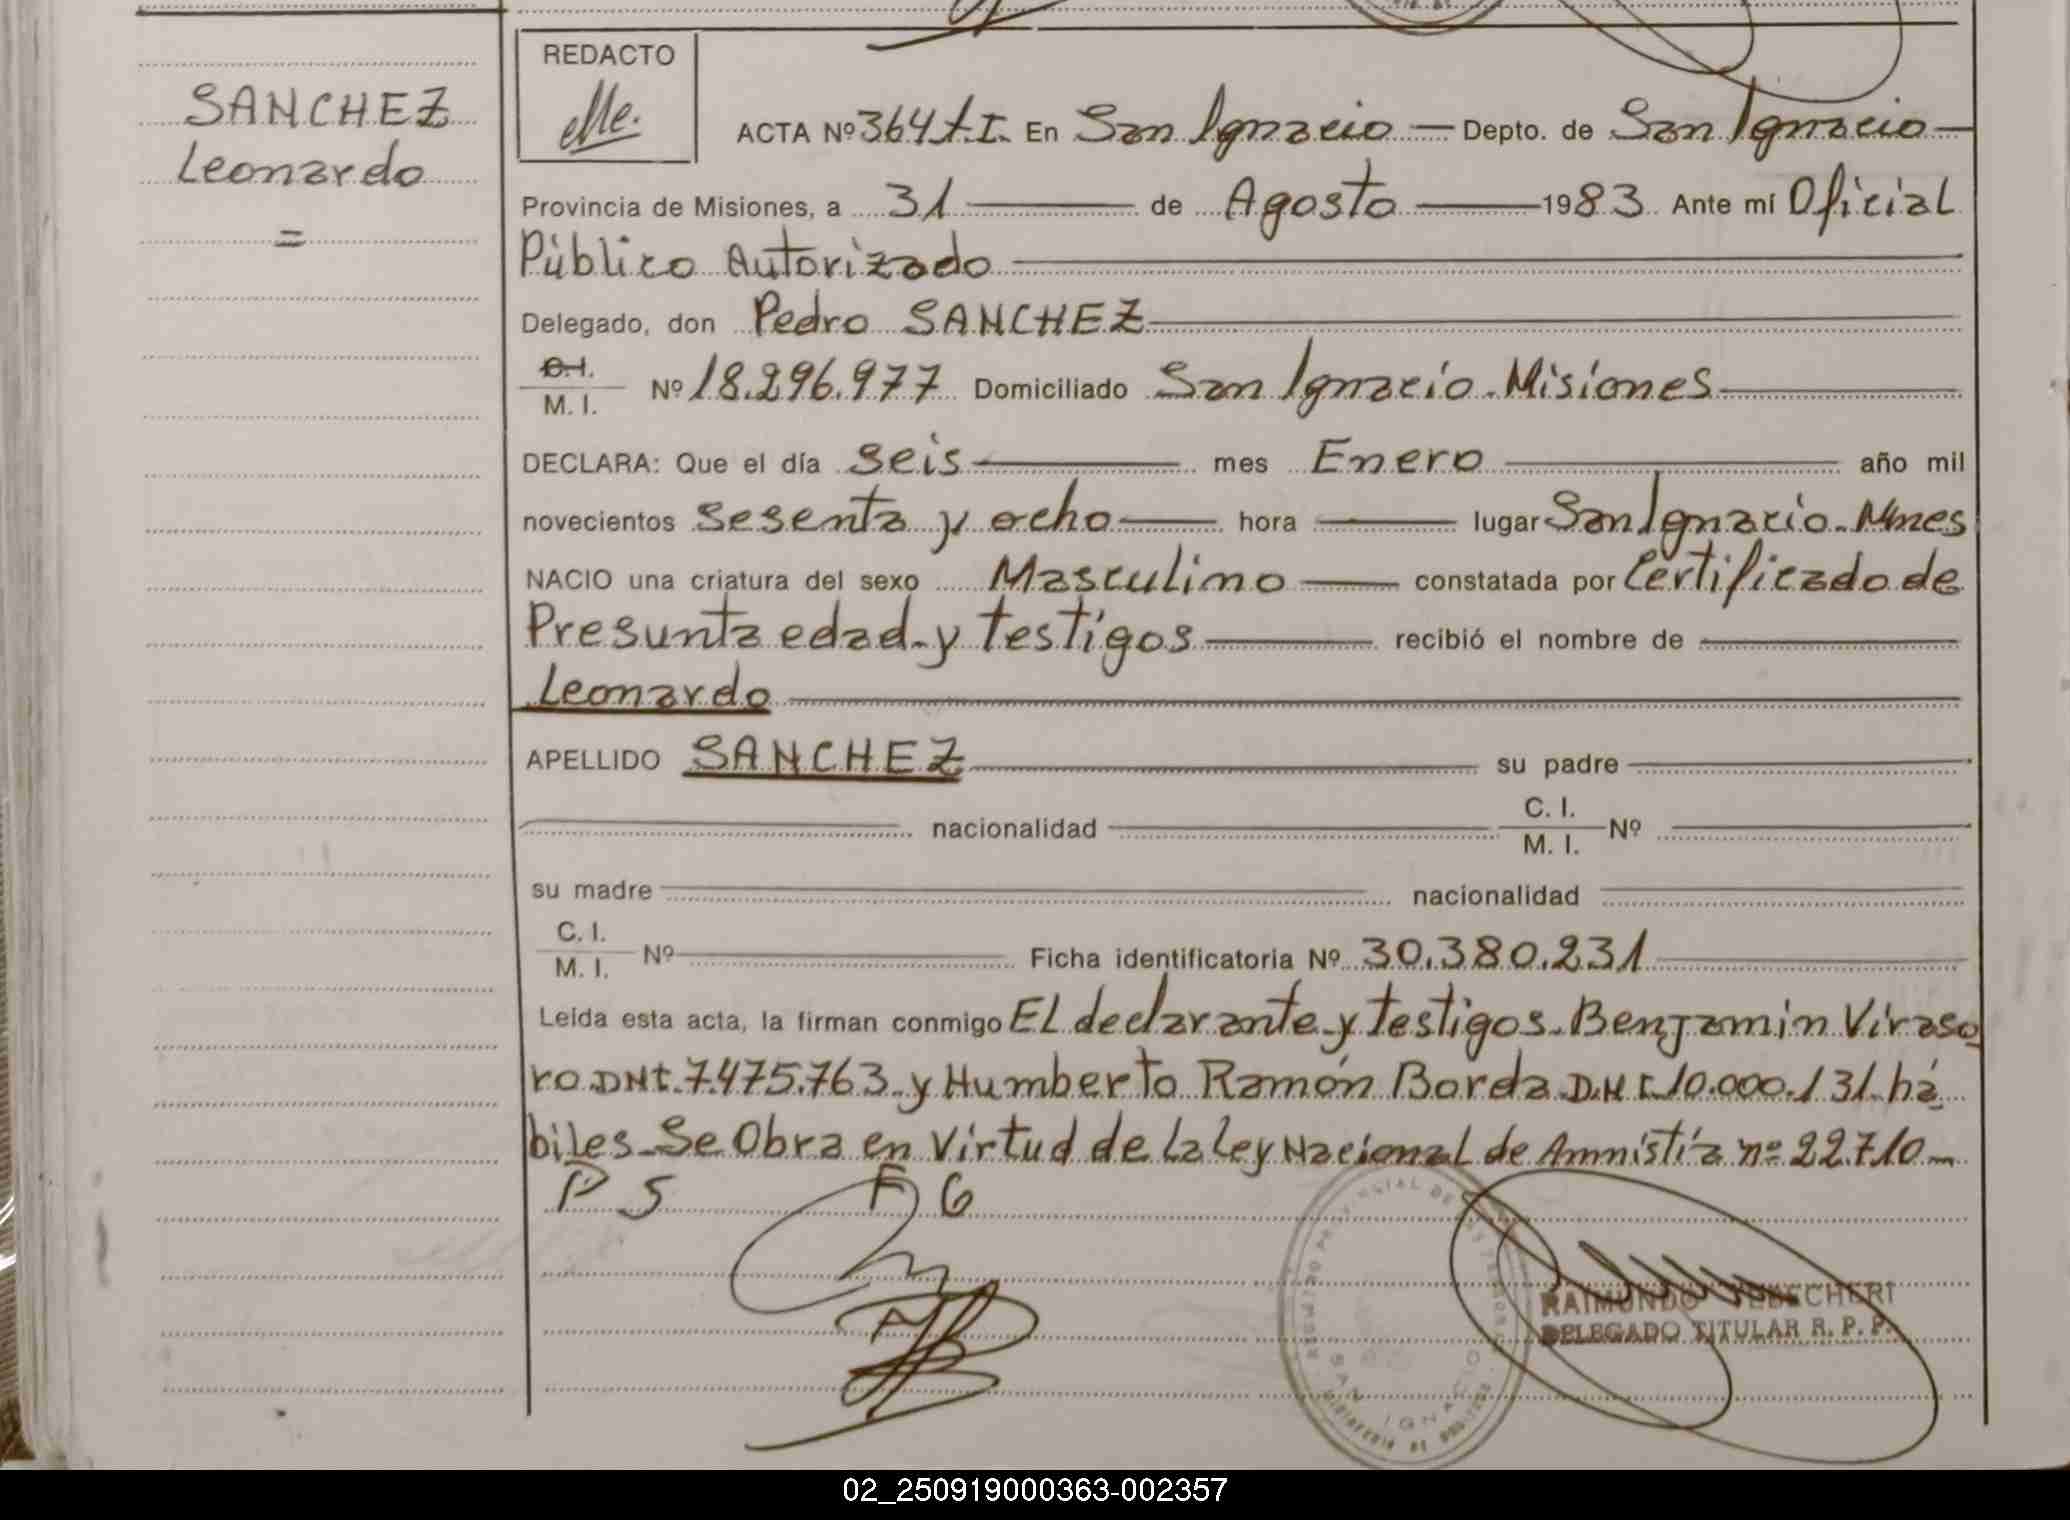 SANCHEZ
Leonardo
=
REDACTO
ACTA Nº 364 t.I. En San Ignacio — Depto. de San Ignacio —
Provincia de Misiones, a 31 — de Agosto — 1983. Ante mí Oficial
Público Autorizado —
Delegado, don Pedro SANCHEZ —
C.I.
M. I.
Nº 18.296.977 Domiciliado San Ignacio. Misiones —
DECLARA: Que el día seis — mes Enero — año mil
novecientos sesenta y ocho — hora — lugar San Ignacio. Mnes
NACIO una criatura del sexo Masculino — constatada por Certificado de
Presunta edad. y testigos — recibió el nombre de —
Leonardo —
APELLIDO SANCHEZ — su padre —
— nacionalidad — C. I.
M. I. Nº —
su madre — nacionalidad —
C. I.
M. I. Nº — Ficha identificatoria Nº 30.380.231 —
Leída esta acta, la firman conmigo EL declarante y testigos. Benjamin Viraso
ro DNI. 7.475.763. y Humberto Ramón Borda D.N.I. 10.000.131. há
biles. Se Obra en Virtud de la Ley Nacional de Amnistía nº 22.710 —
P 5 F 6
SAN IGNACIO
RAIMUNDO
DELEGADO TITULAR R. P. P.
02_250919000363-002357